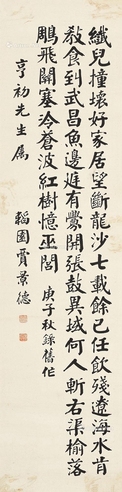 纖兒撞壞好家居望斷龍沙七載餘已任飲殘遼海水肯
教食到武昌魚邊避有釁開張鼓異域何人斬右渠榆落
鵰飛關塞冷蒼波紅樹憶巫閭
庚子秋錄舊作
亨初先生屬
韜園賈景德